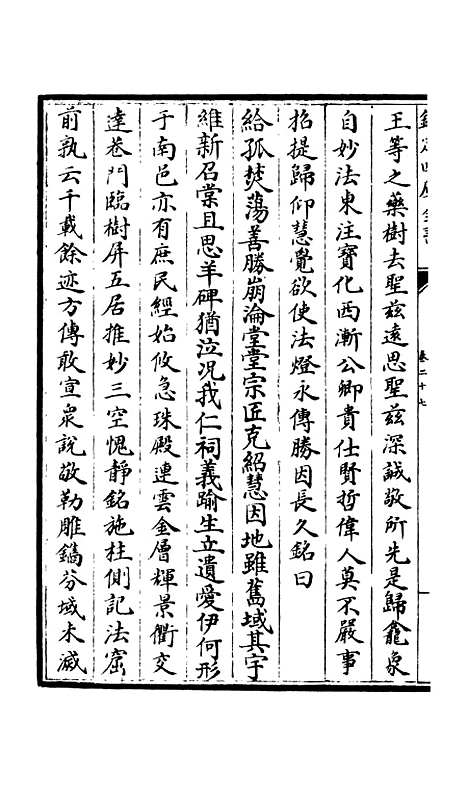 欽定四庫全書
卷二十七
王等之藥樹去聖玆遠思聖玆深誠敬所先是歸龕象
自妙法東注寳化西漸公卿貴仕賢哲偉人莫不嚴事
招提歸仰慧覺欲使法燈永傳勝因長久銘曰
給孤焚蕩善勝崩淪堂堂宗匠克紹慧因地雖舊域其宇
維新召棠且思羊碑猶泣況我仁祠義踰生立遺愛伊何形
于南邑亦有庶民經始攸急珠殿連雲金層輝景衢交
達巷門臨樹屏五居推妙三空愧靜銘施柱側記法窟
前孰云千載餘迹方傳敢宣衆說敬勒雕鐫芬域未滅